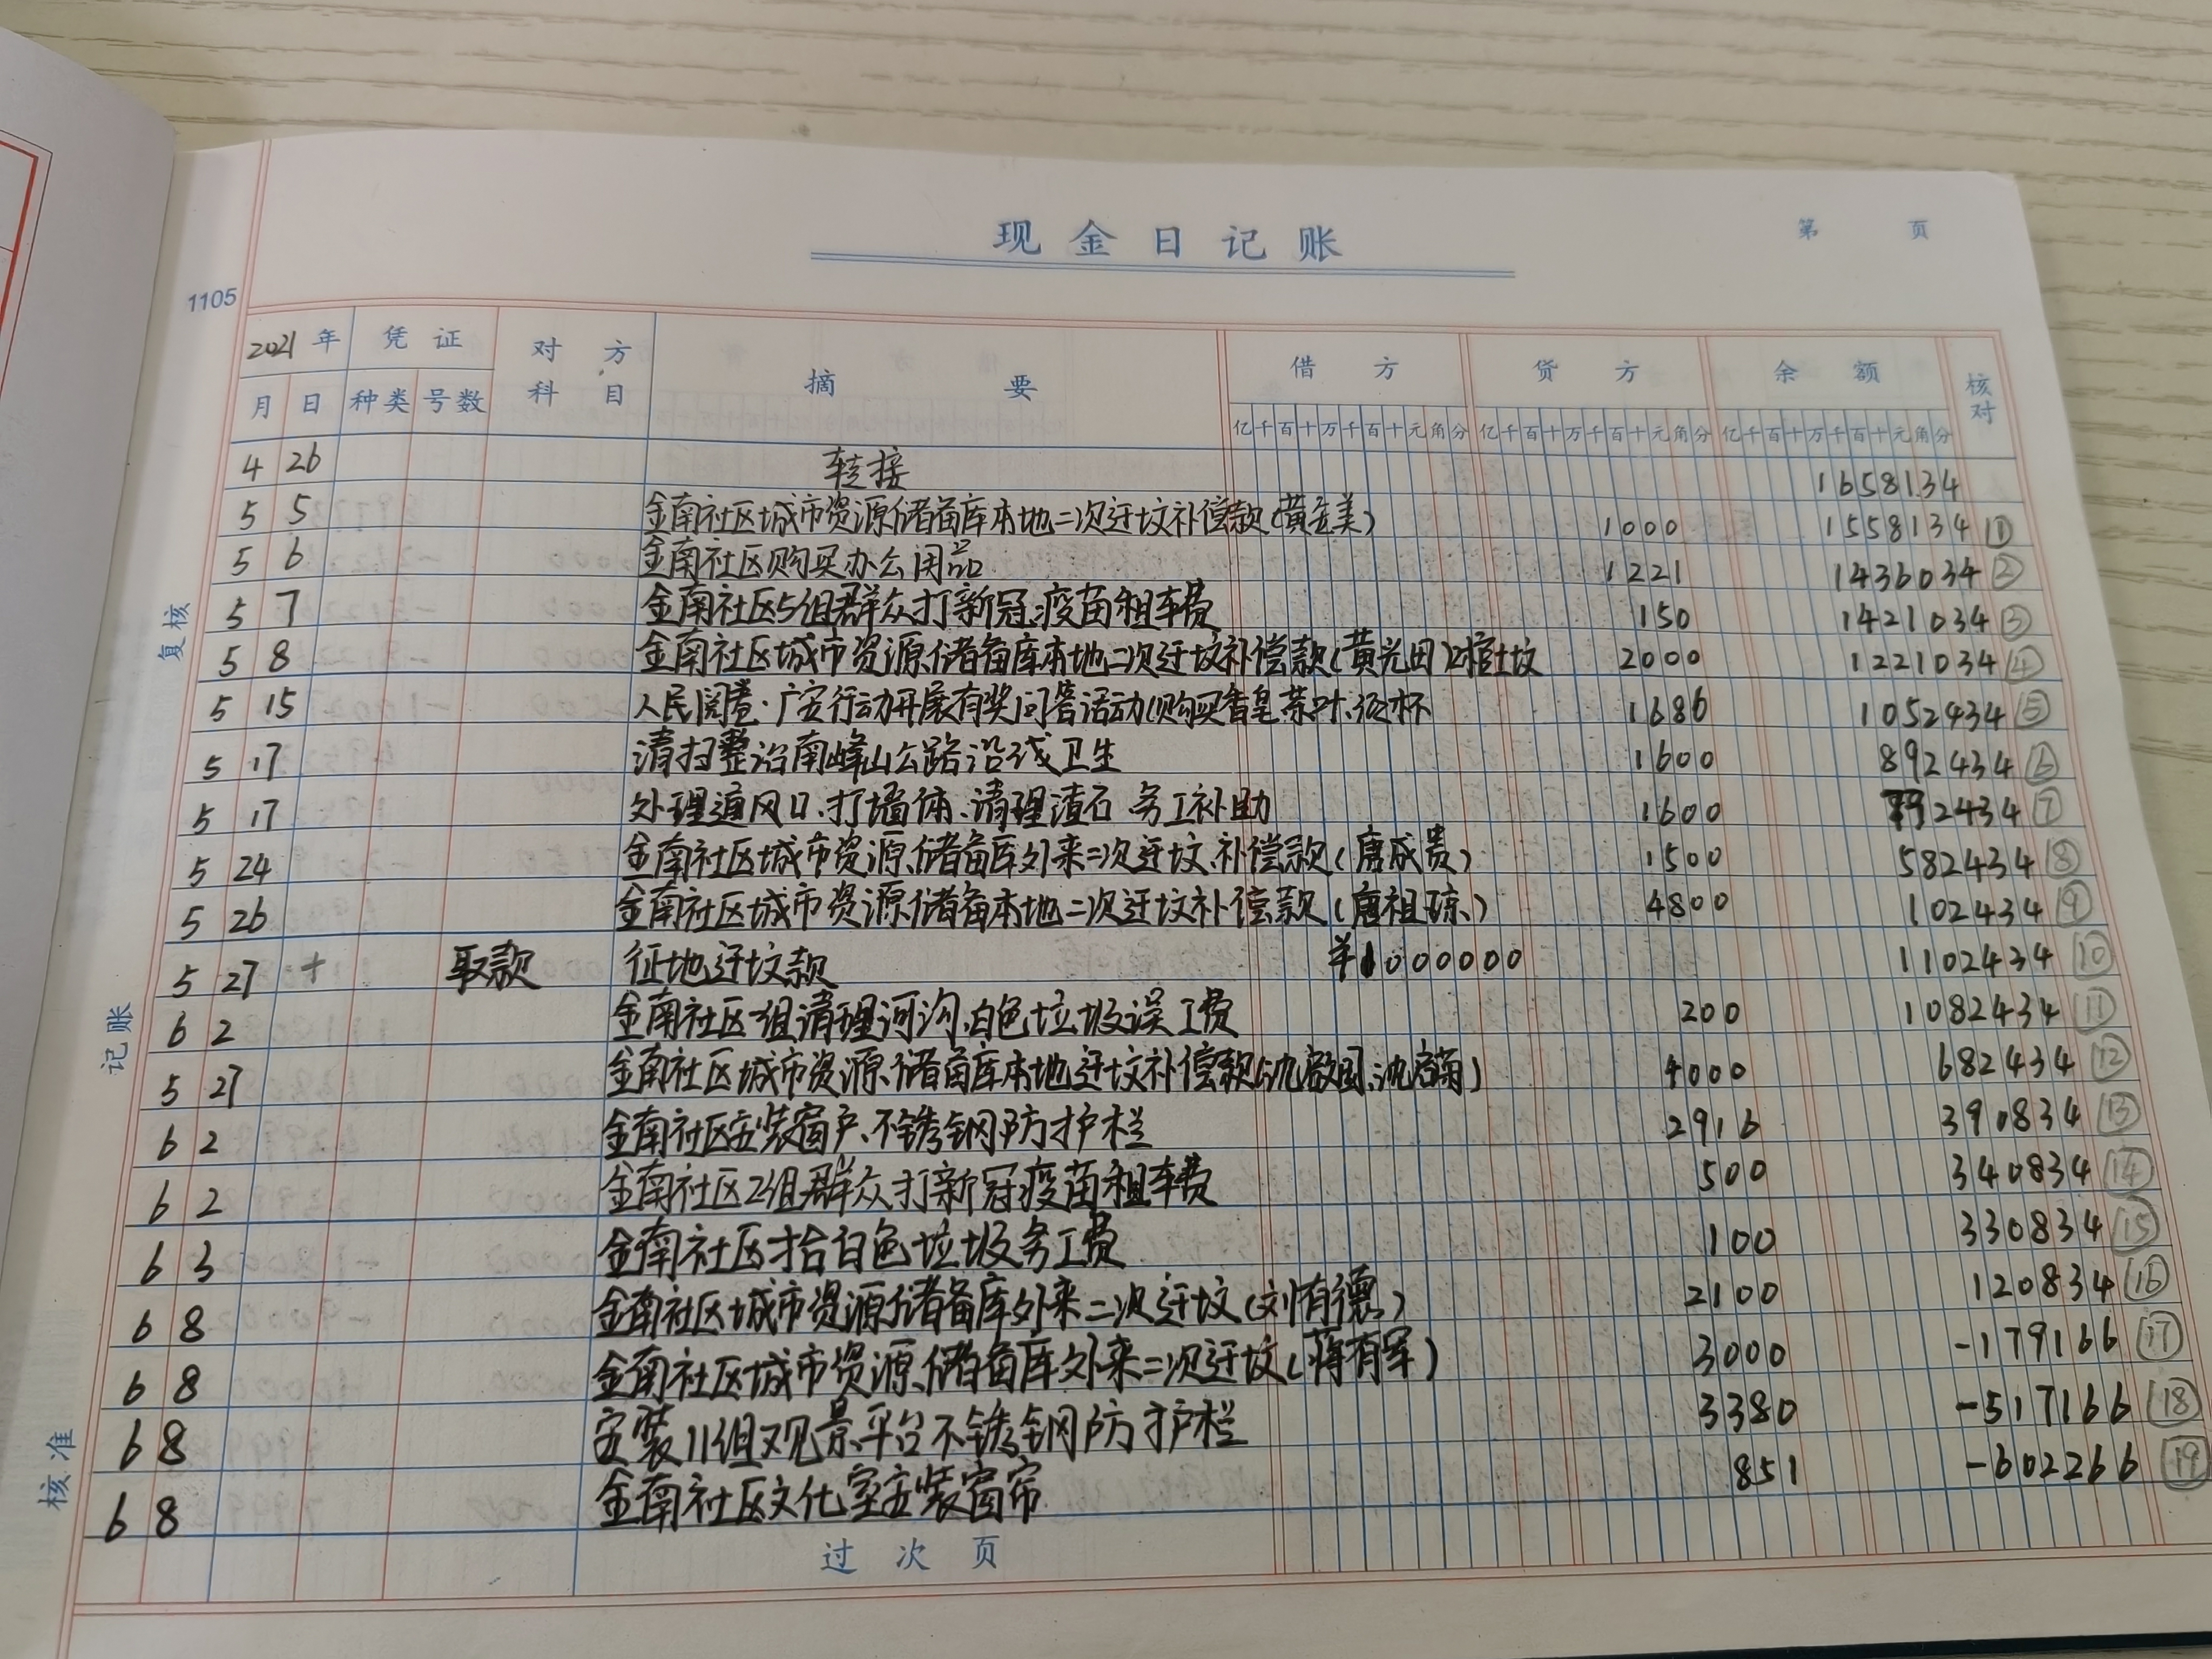 现金日记账
第 页
1105
2021年 凭证 对方科目 摘要 借方 贷方 余额 核对
月 日 种类 号数 亿千百十万千百十元角分 亿千百十万千百十元角分 亿千百十万千百十元角分
4 26 转接 1658134
5 5 金南社区城市资源储备库本地二次迁坟补偿款(黄金美) 1000 1558134 ①
5 6 金南社区购买办公用品 1221 1436034 ②
5 7 金南社区5组群众打新冠疫苗租车费 150 1421034 ③
5 8 金南社区城市资源储备库本地二次迁坟补偿款(黄光田)2棺土坟 2000 1221034 ④
5 15 人民阅卷·广安行动开展有奖问答活动(购买香皂、茶叶、纸杯 1686 1052434 ⑤
5 17 清扫整治南峰山公路沿线卫生 1600 892434 ⑥
5 17 处理通风口、打墙体、清理渣石 务工补助 1600 2434 ⑦
5 24 金南社区城市资源储备库外来二次迁坟补偿款(唐成贵) 1500 582434 ⑧
5 26 金南社区城市资源储备本地二次迁坟补偿款(唐祖琼) 4800 102434 ⑨
5 27 + 取款 征地迁坟款 ¥1000000 1102434 ⑩
6 2 金南社区一组清理河沟白色垃圾误工费 200 1082434 ⑪
5 27 金南社区城市资源储备库本地迁坟补偿款(沈 、沈 ) 4000 682434 ⑫
6 2 金南社区安装窗户、不锈钢防护栏 2916 390834 ⑬
6 2 金南社区2组群众打新冠疫苗租车费 500 340834 ⑭
6 3 金南社区拾白色垃圾务工费 100 330834 ⑮
6 8 金南社区城市资源储备库外来二次迁坟(刘有德) 2100 120834 ⑯
6 8 金南社区城市资源储备库外来二次迁坟(蒋有军) 3000 -179166 ⑰
6 8 安装11组观景平台不锈钢防护栏 3380 -517166 ⑱
6 8 金南社区文化室安装窗帘 851 -602266 ⑲
过次页
复核
记账
核准